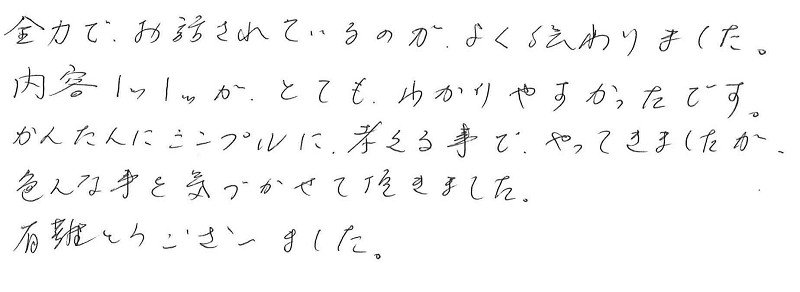 全力で、お話されているのが、よく伝わりました。
内容1つ1つが、とても、わかりやすかったです。
かんたんにシンプルに、考える事で、やってきましたが、
色んな事を気づかせて頂きました。
有難とうございました。